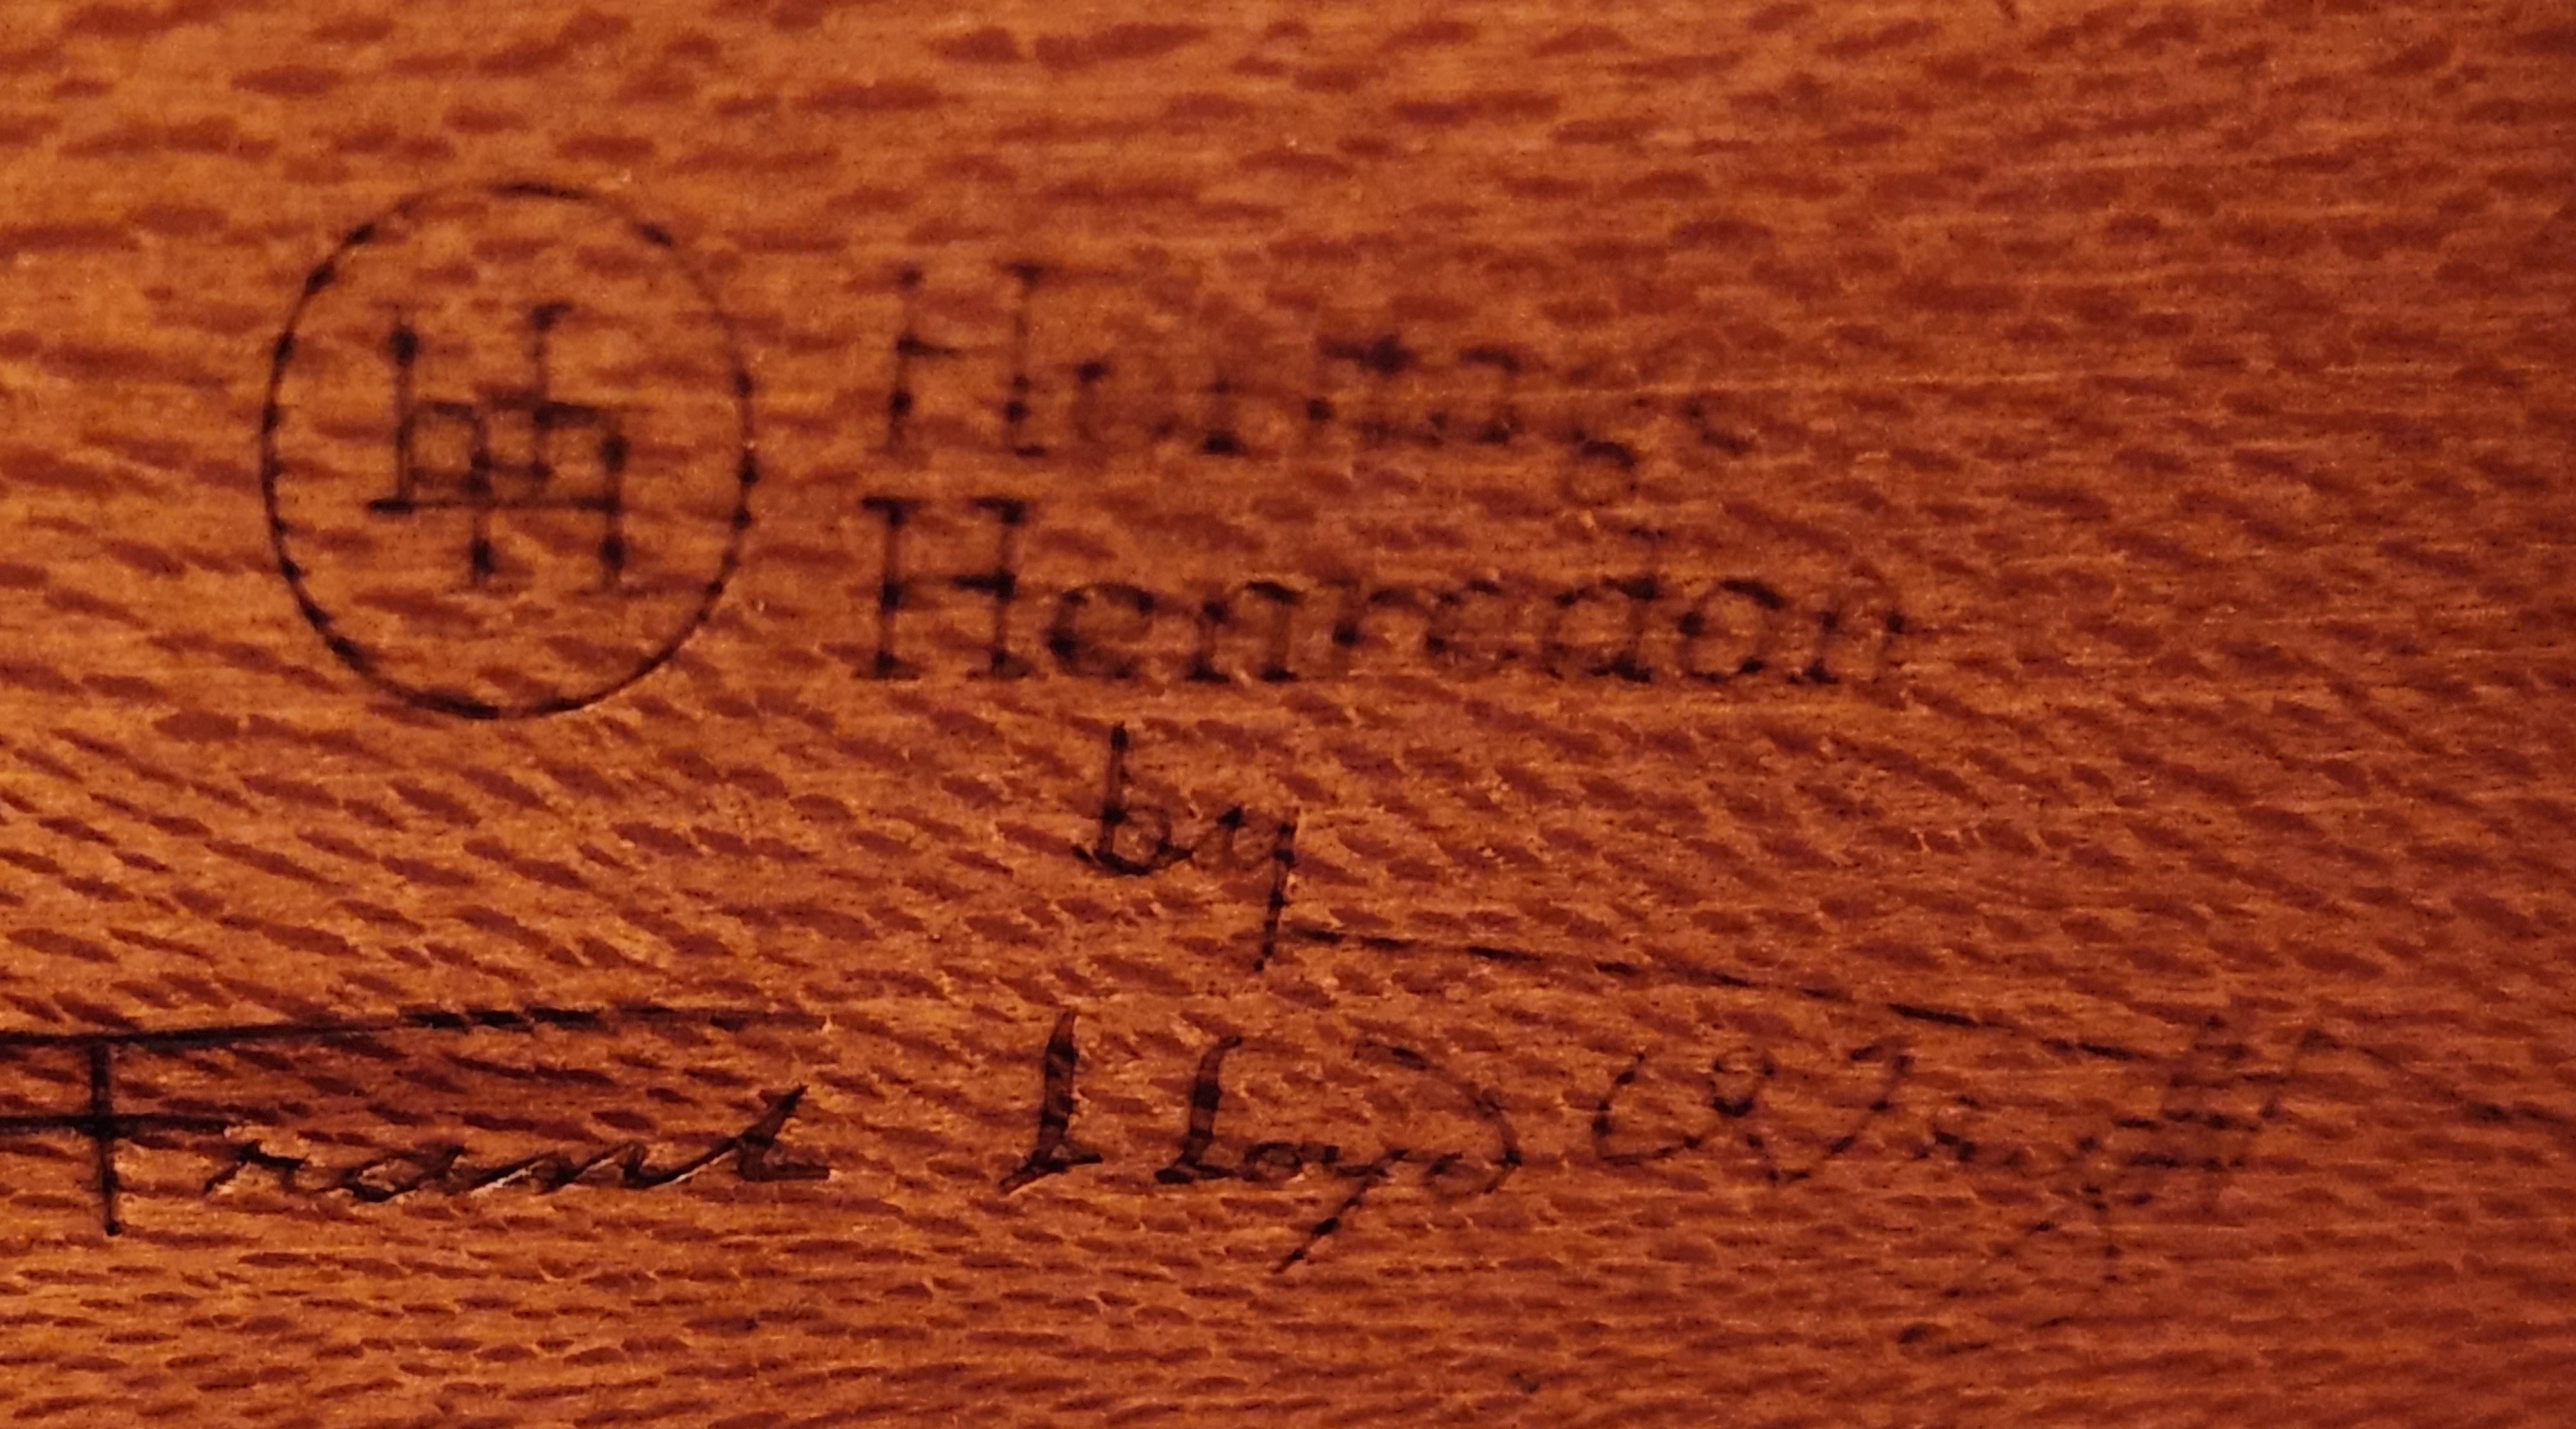 Heritage
Henredon
by
Frank Lloyd Wright